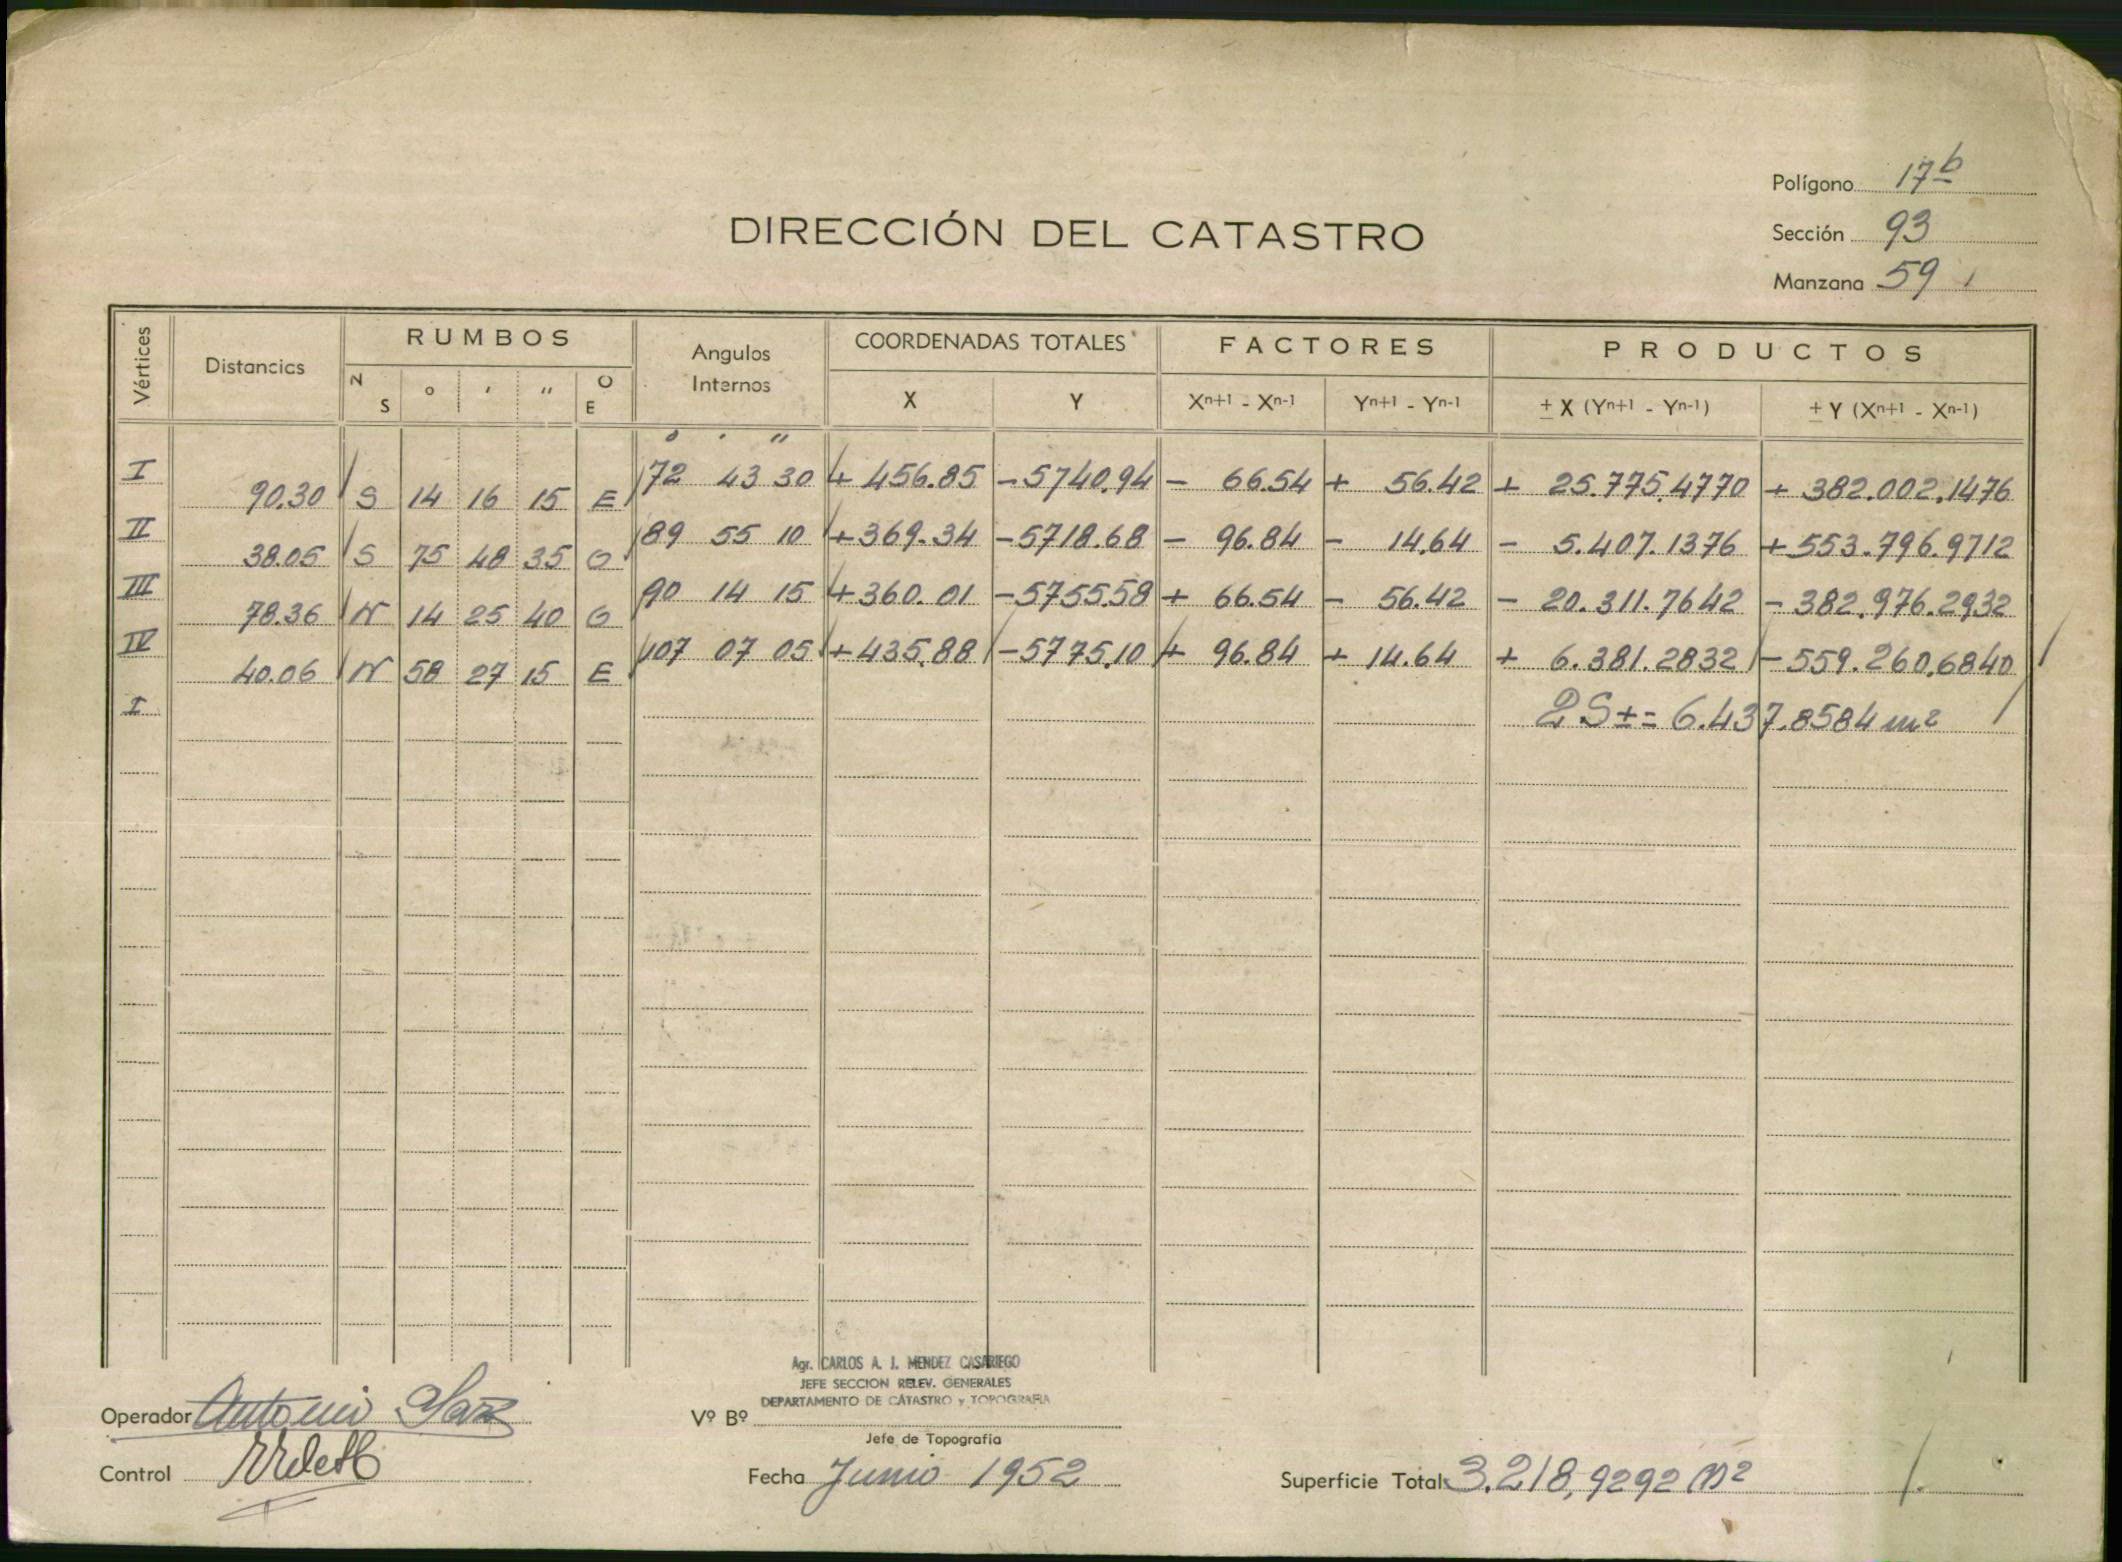 Polígono 17b
Sección 93
Manzana 59
DIRECCIÓN DEL CATASTRO
Vértices Distancias RUMBOS Angulos Internos COORDENADAS TOTALES FACTORES PRODUCTOS
N S ° ' " O E X Y Xn+1 - Xn-1 Yn+1 - Yn-1 ± X (Yn+1 - Yn-1) ± Y (Xn+1 - Xn-1)
° ' "
I 72 43 30 + 456.85 - 5740.94 - 66.54 + 56.42 + 25.775.4770 + 382.002.1476
90.30 S 14 16 15 E
II 89 55 10 + 369.34 - 5718.68 - 96.84 - 14.64 - 5.407.1376 + 553.796.9712
38.05 S 75 48 35 O
III 90 14 15 + 360.01 - 5755.58 + 66.54 - 56.42 - 20.311.7642 - 382.976.2932
78.36 N 14 25 40 O
IV 107 07 05 + 435.88 - 5775.10 + 96.84 + 14.64 + 6.381.2832 - 559.260.6840
40.06 N 58 27 15 E
I
2 S ± = 6.437.8584 m2
Agr. CARLOS A. J. MENDEZ CASARIEGO
JEFE SECCION RELEV. GENERALES
DEPARTAMENTO DE CATASTRO y TOPOGRAFIA
Operador Antonio
Vº Bº
Jefe de Topografía
Control
Fecha Junio 1952
Superficie Total 3.218,9292 m2